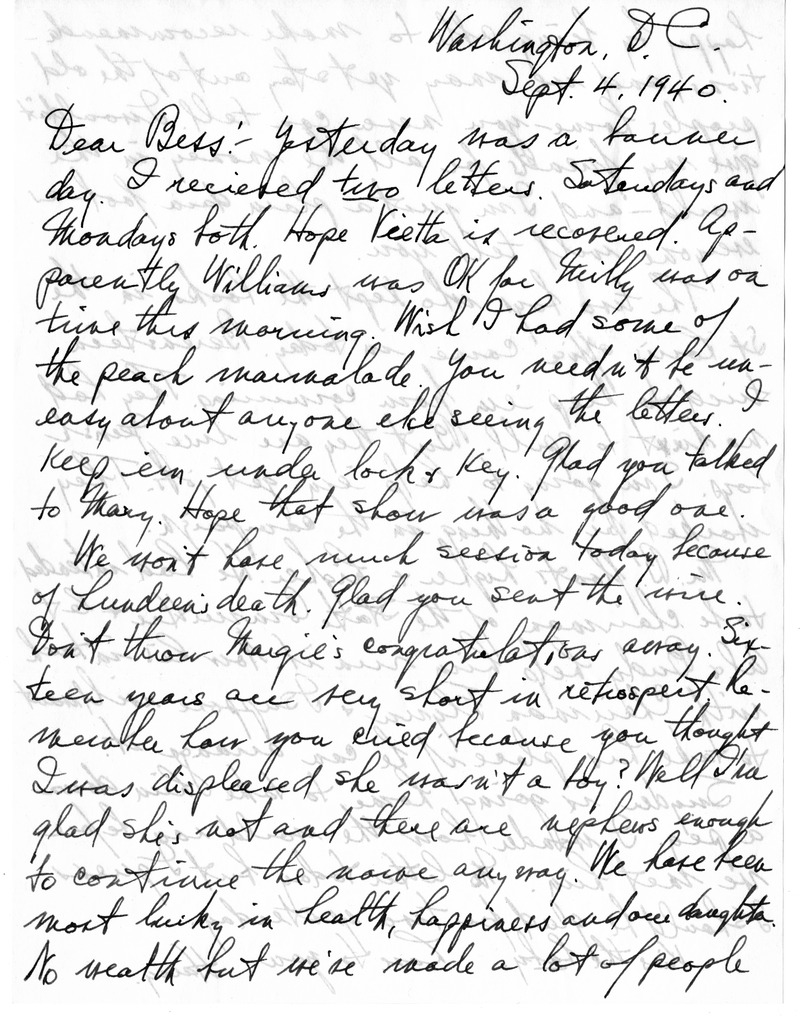 Washington, D.C.
Sept. 4, 1940.
Dear Bess:- Yesterday was a banner
day. I recieved two letters. Saturdays and
Mondays both. Hope Vietta is recovered. Ap-
parently Williams was OK for Milly was on
time this morning. Wish I had some of
the peach marmalade. You needn't be un-
easy about anyone else seeing the letters. I
keep em under lock & key. Glad you talked
to Mary. Hope that show was a good one.
We won't have much session today because
of Lundeen's death. Glad you sent the wire.
Don't throw Margie's congratulations away. Six-
teen years are very short in retrospect. Re-
member how you cried because you thought
I was displeased she wasn't a boy? Well I'm
glad she's not and there are nephews enough
to continue the name anyway. We have been
most lucky in health, happiness and our daughter.
No wealth but we've made a lot of people